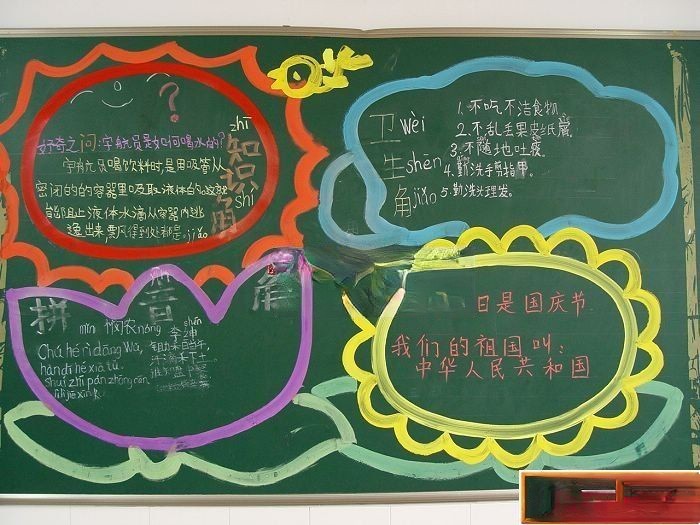 好奇之问:宇航员是如何喝水的?
宇航员喝饮料时是用吸管从
密闭的的容器里吸取液体的,这就
能阻止液体水滴从容器内逃
逸出来,飘得到处都是。
zhī
知
识
shi
角
jiǎo
卫 wèi
生 shēng
角 jiǎo
1.不吃不洁食物
2.不乱丢果皮纸屑
3.不随地吐痰
4.勤洗手剪指甲。
5.勤洗头理发。
拼 音 角
mǐn 悯农 nóng
Chú hé rì dāng Wǔ,
hàn dī hé xià tǔ.
shuí zhī pán zhōng cān,
lì lì jiē xīn kǔ
李绅
锄禾日当午,
汗滴禾下土。
谁知盘中餐
日是国庆节
我们的祖国叫:
中华人民共和国